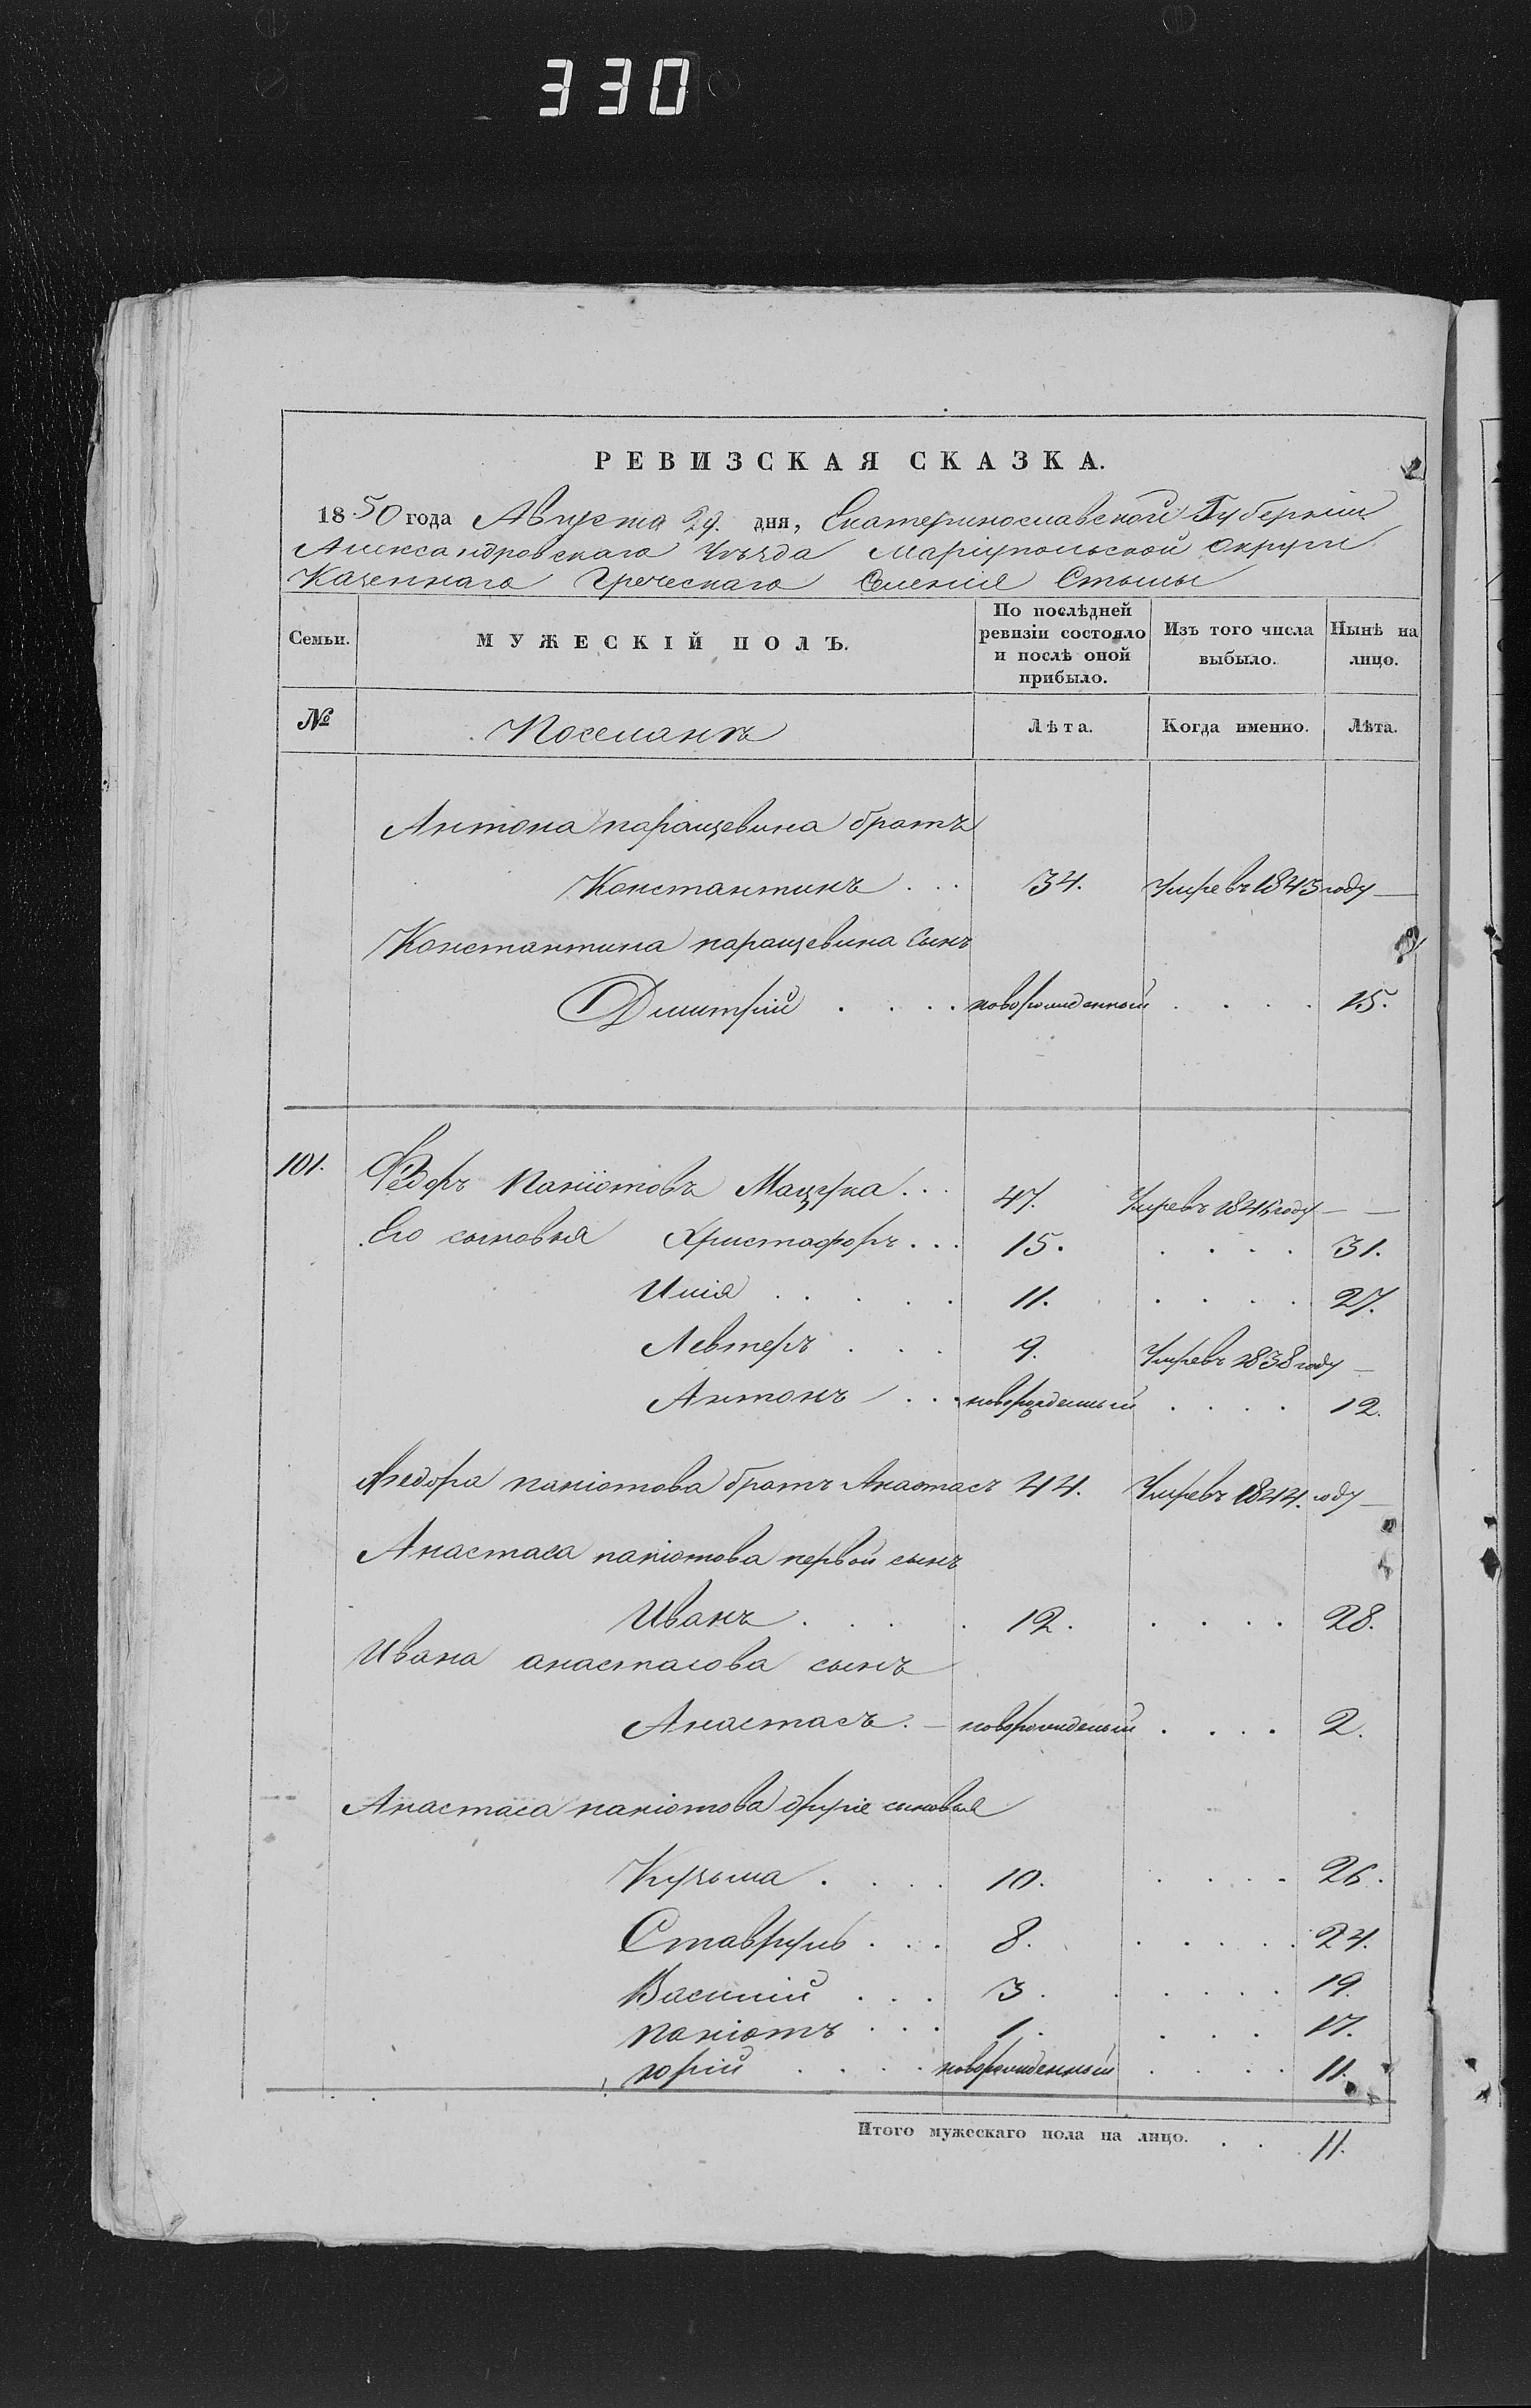 330
РЕВИЗСКАЯ СКАЗКА.
1850 года Августа 29. дня, Екатеринославской Губернiи
Александровскаго уѣзда Марiупольской округи
Казеннаго Греческаго Селенiя Стылы
Семьи. МУЖЕСКIЙ ПОЛЪ. По послѣдней ревизiи состояло и послѣ оной прибыло. Изъ того числа выбыло. Нынѣ на лицо.
№ Поселянъ Лѣта. Когда именно. Лѣта.
Антона паращевина братъ
Константинъ . . . 34. Умре въ 1843 году —
Константина паращевина сынъ
Дмитрiй . . . . новорожденной . . . . 15.
101. Федоръ Панiотовъ Мацука . . . 47. Умре въ 1846 году — —
Его сыновья Христофоръ . . . 15. . . . . 31.
Илiя . . . . . 11. . . . . 27.
Левтеръ . . . 9. Умре въ 1838 году —
Антонъ . . . новорожденный . . . . 12.
Федора панiотова братъ Анастасъ 44. Умре въ 1844. году —
Анастаса панiотова первой сынъ
Иванъ . . . . 12. . . . . 28.
Ивана анастасова сынъ
Анастасъ. — новорожденый . . . . 2.
Анастаса панiотова другiе сыновья
Кузьма . . . . 10. . . . . 26.
Ставруль . . . 8. . . . . . 24.
Василiй . . . 3. . . . . . 19.
панiотъ . . . 1. . . . 17.
юрiй . . . . новорожденный . . . . 11.
Итого мужескаго пола на лицо. . . . 11.